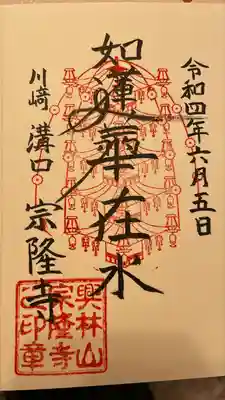 令和四年六月五日
如蓮華在水
川崎 溝口 宗隆寺
興林山
宗隆寺
之印章